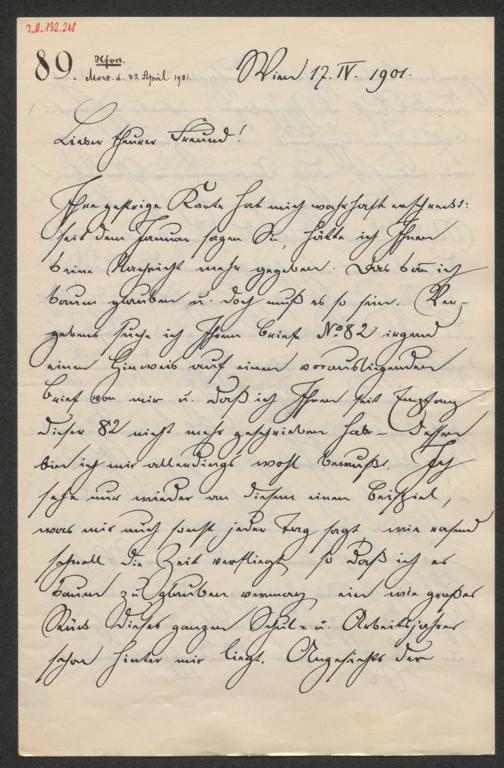 I.N. 132.218
89.
Mont. d. 22 April 1901.
Wien 17. IV. 1901.
Lieber theurer Freund!
Ihre gestrige Karte hat mich wahrhaft erschreckt:
seit dem Januar sagen Sie, hätte ich Ihnen
keine Nachricht mehr gegeben. Das kann ich
kaum glauben u. doch muß es so sein. Ver-
gebens suche ich Ihrem Briefe No 82 irgend
einen Hinweis auf einen vorausliegenden
Brief von mir u. daß ich Ihnen seit Empfang
dieser 82 nicht mehr geschrieben hab – dessen
bin ich mir allerdings wohl bewußt. Ich
sehe nur wieder an diesem einen Beispiel,
was mir auch sonst jeder Tag sagt wie rasend
schnell die Zeit verfliegt, so daß ich es
kaum zu glauben vermag, ein wie großes
Stück dieses ganzen Schul- u. Arbeitsjahres
schon hinter mir liegt. Angesichts der